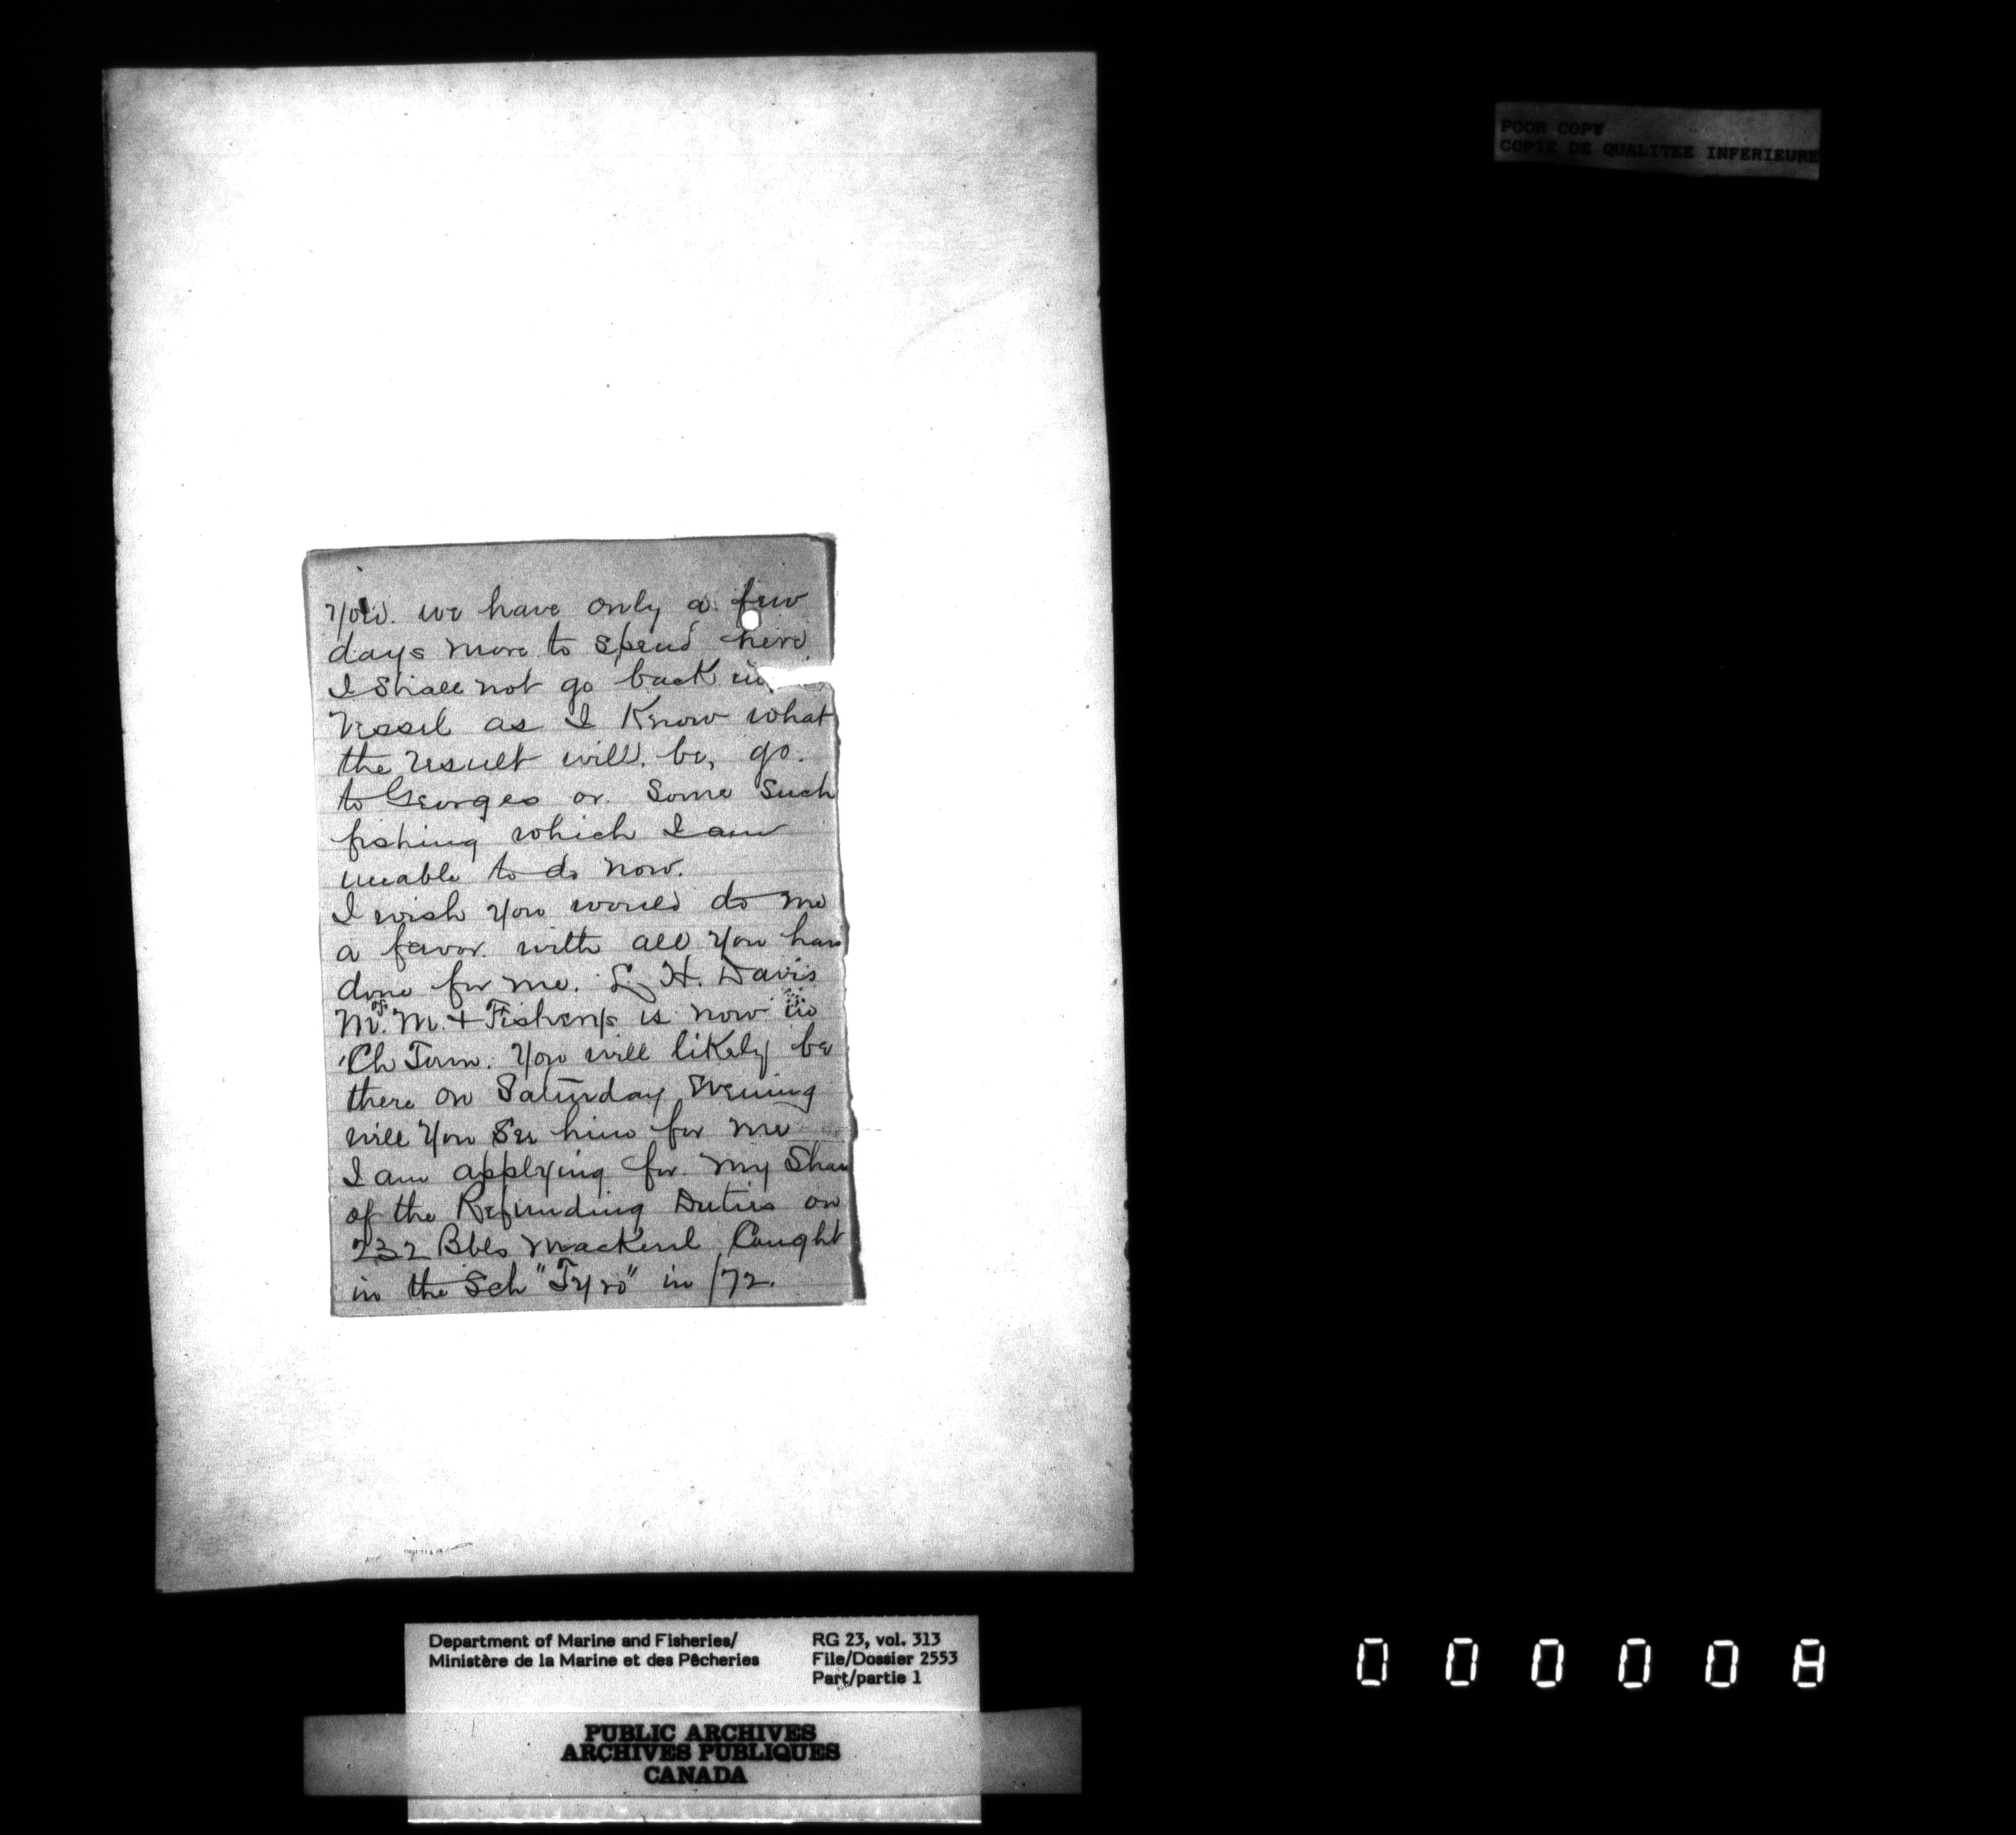 POOR COPY
COPIE DE QUALITEE INFERIEURE
you. we have only a few
days more to spend here
I shall not go back in
Vessel as I Know what
the result will be, go.
to Georges or Some Such
fishing which I am
unable to do now.
I wish you would do me
a favor with all you have
done for me. L. H. Davis
M. of M. & Fisherys is now in
Ch Town. You will likely be
there on Saturday Evening
will you See him for me
I am applying for my Shar
of the Refunding Duties on
232 Bbls Mackerel Caught
in the Sch "Tyro" in /72.
Department of Marine and Fisheries/
Ministère de la Marine et des Pêcheries
RG 23, vol. 313
File/Dossier 2553
Part/partie 1
PUBLIC ARCHIVES
ARCHIVES PUBLIQUES
CANADA
000008